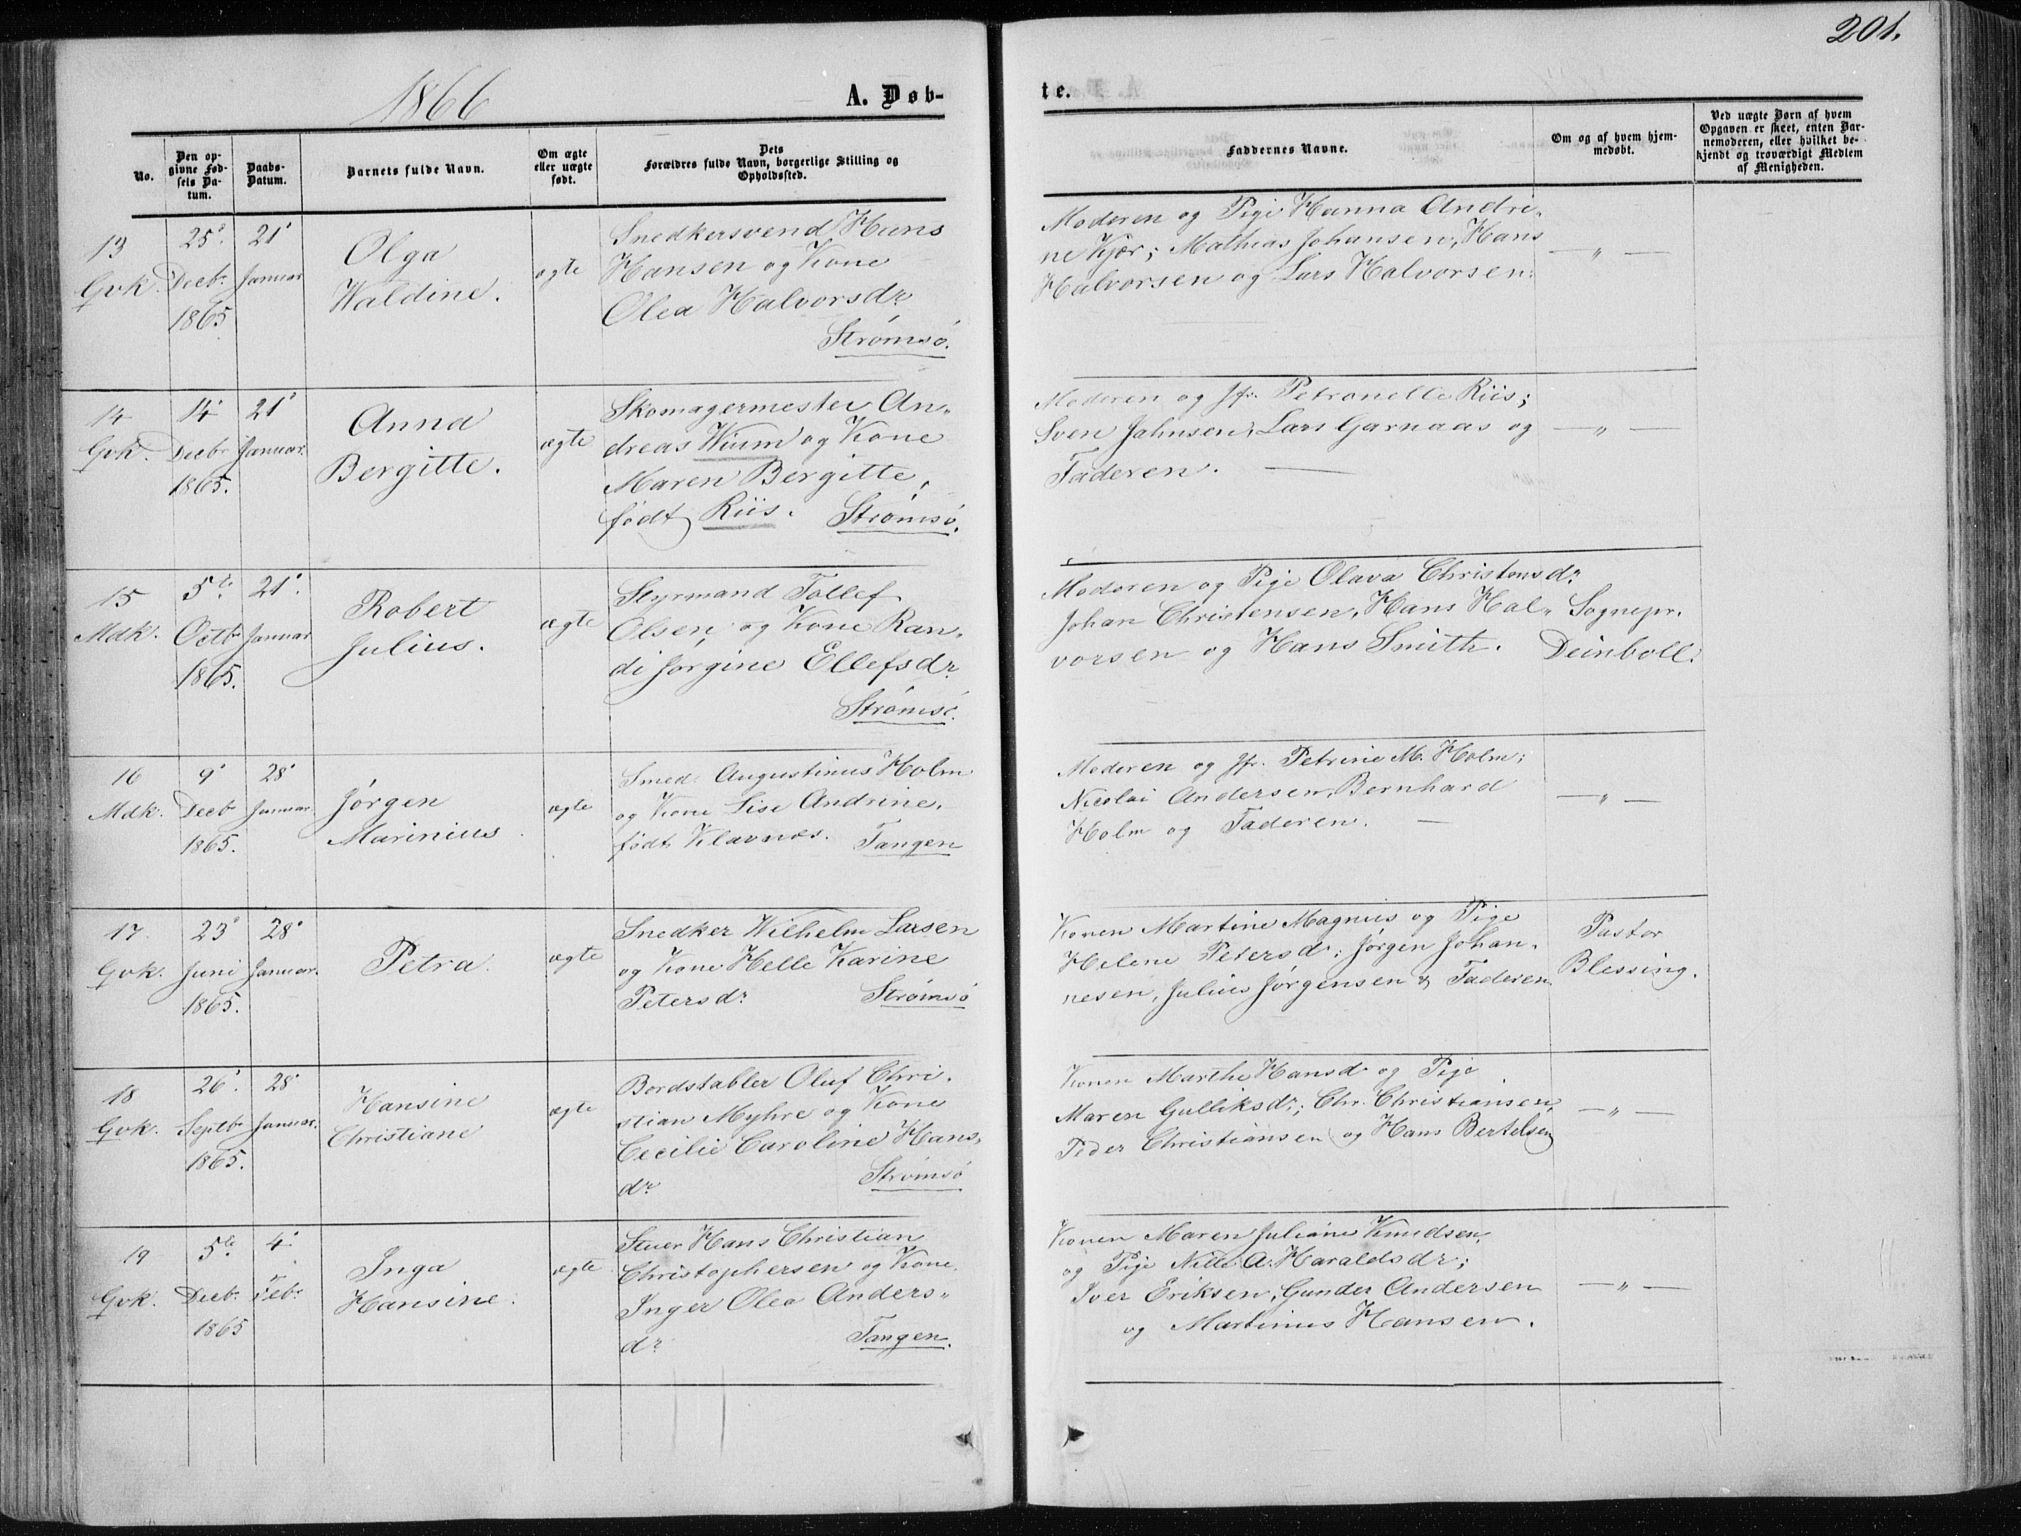 201.
1866
A. Døb-
te.
No.
Den op-
givne Fød-
sels Da-
tum.
Daabs-
Datum.
Barnets fulde Navn.
Om ægte
eller uægte
født.
Dets
Forældres fulde Navn, borgerlige Stilling og
Opholdssted.
Faddernes Navne.
Om og af hvem hjem-
medøbt.
Ved uægte Børn af hvem
Opgaven er skeet, enten Bar-
nemoderen, eller hvilket be-
kjendt og troværdigt Medlem
af Menigheden.
13
Gvk.
25'
Decbr
1865
21'
Januar
Olga
Waldine.
ægte
Snedkersvend Hans
Hansen og Kone
Olea Halvorsdr
Strømsø.
Moderen og Pige Hanna Andri-
ne Kjær; Mathias Johansen, Hans
Halvorsen og Lars Halvorsen.
— " —
14
Gvk.
14'
Decbr
1865.
21'
Januar.
Anna
Bergitte.
ægte
Skomagermester An-
dreas Wium og Kone
Maren Bergitte,
født Riis. Strømsø.
Moderen og Jfr. Petronelle Riis;
Sven Jahnsen, Lars Garnaas og
Faderen. —
— " —
15
Mdk.
5te
Octbr
1865.
21'
Januar
Robert
Julius.
ægte
Styrmand Tollef
Olsen og Kone Ran-
di Jørgine Ellefsdr
Strømsø.
Moderen og Pige Olava Christensdr
Johan Christensen, Hans Hal-
vorsen og Hans Smith.
Sognepr.
Deinboll.
16
Mdk.
9'
Decbr
1865.
28'
Januar
Jørgen
Marinius.
ægte
Smed Augustinus Holm
og Kone Lise Andrine,
født Klavnæs. Tangen
Moderen og Jfr. Petrine M. Holm;
Nicolai Andersen, Bernhard
Holm og Faderen. —
— " —
17.
Gvk.
23'
Juni
1865.
28'
Januar.
Petra.
ægte
Snedker Wilhelm Larsen
og Kone Helle Karine
Petersdr Strømsø
Konen Martine Magnus og Pige
Helene Petersd; Jørgen Johan-
nesen, Julius Jørgensen & Faderen
Pastor
Blessing.
18
Gvk.
26'
Septbr
1865.
28'
Januar.
Hansine
Christiane
ægte
Bordstabler Oluf Chri-
stian Myhre og Kone
Cecilie Caroline Hans-
dr Strømsø
Konen Marthe Hansd og Pige
Maren Gulliksdr; Chr. Christiansen,
Peder Christiansen og Hans Bertelsen
— " —
19
Gvk.
5te
Decbr
1865
4'
Febr
Inga
Hansine.
ægte
Stuer Hans Christian
Christophersen og Kone
Inger Olea Anders-
dr Tangen.
Konen Maren Juliane Knudsen,
og Pige Nille A. Haraldsdr;
Iver Eriksen, Gunder Andersen
og Martinius Hansen.
— " —